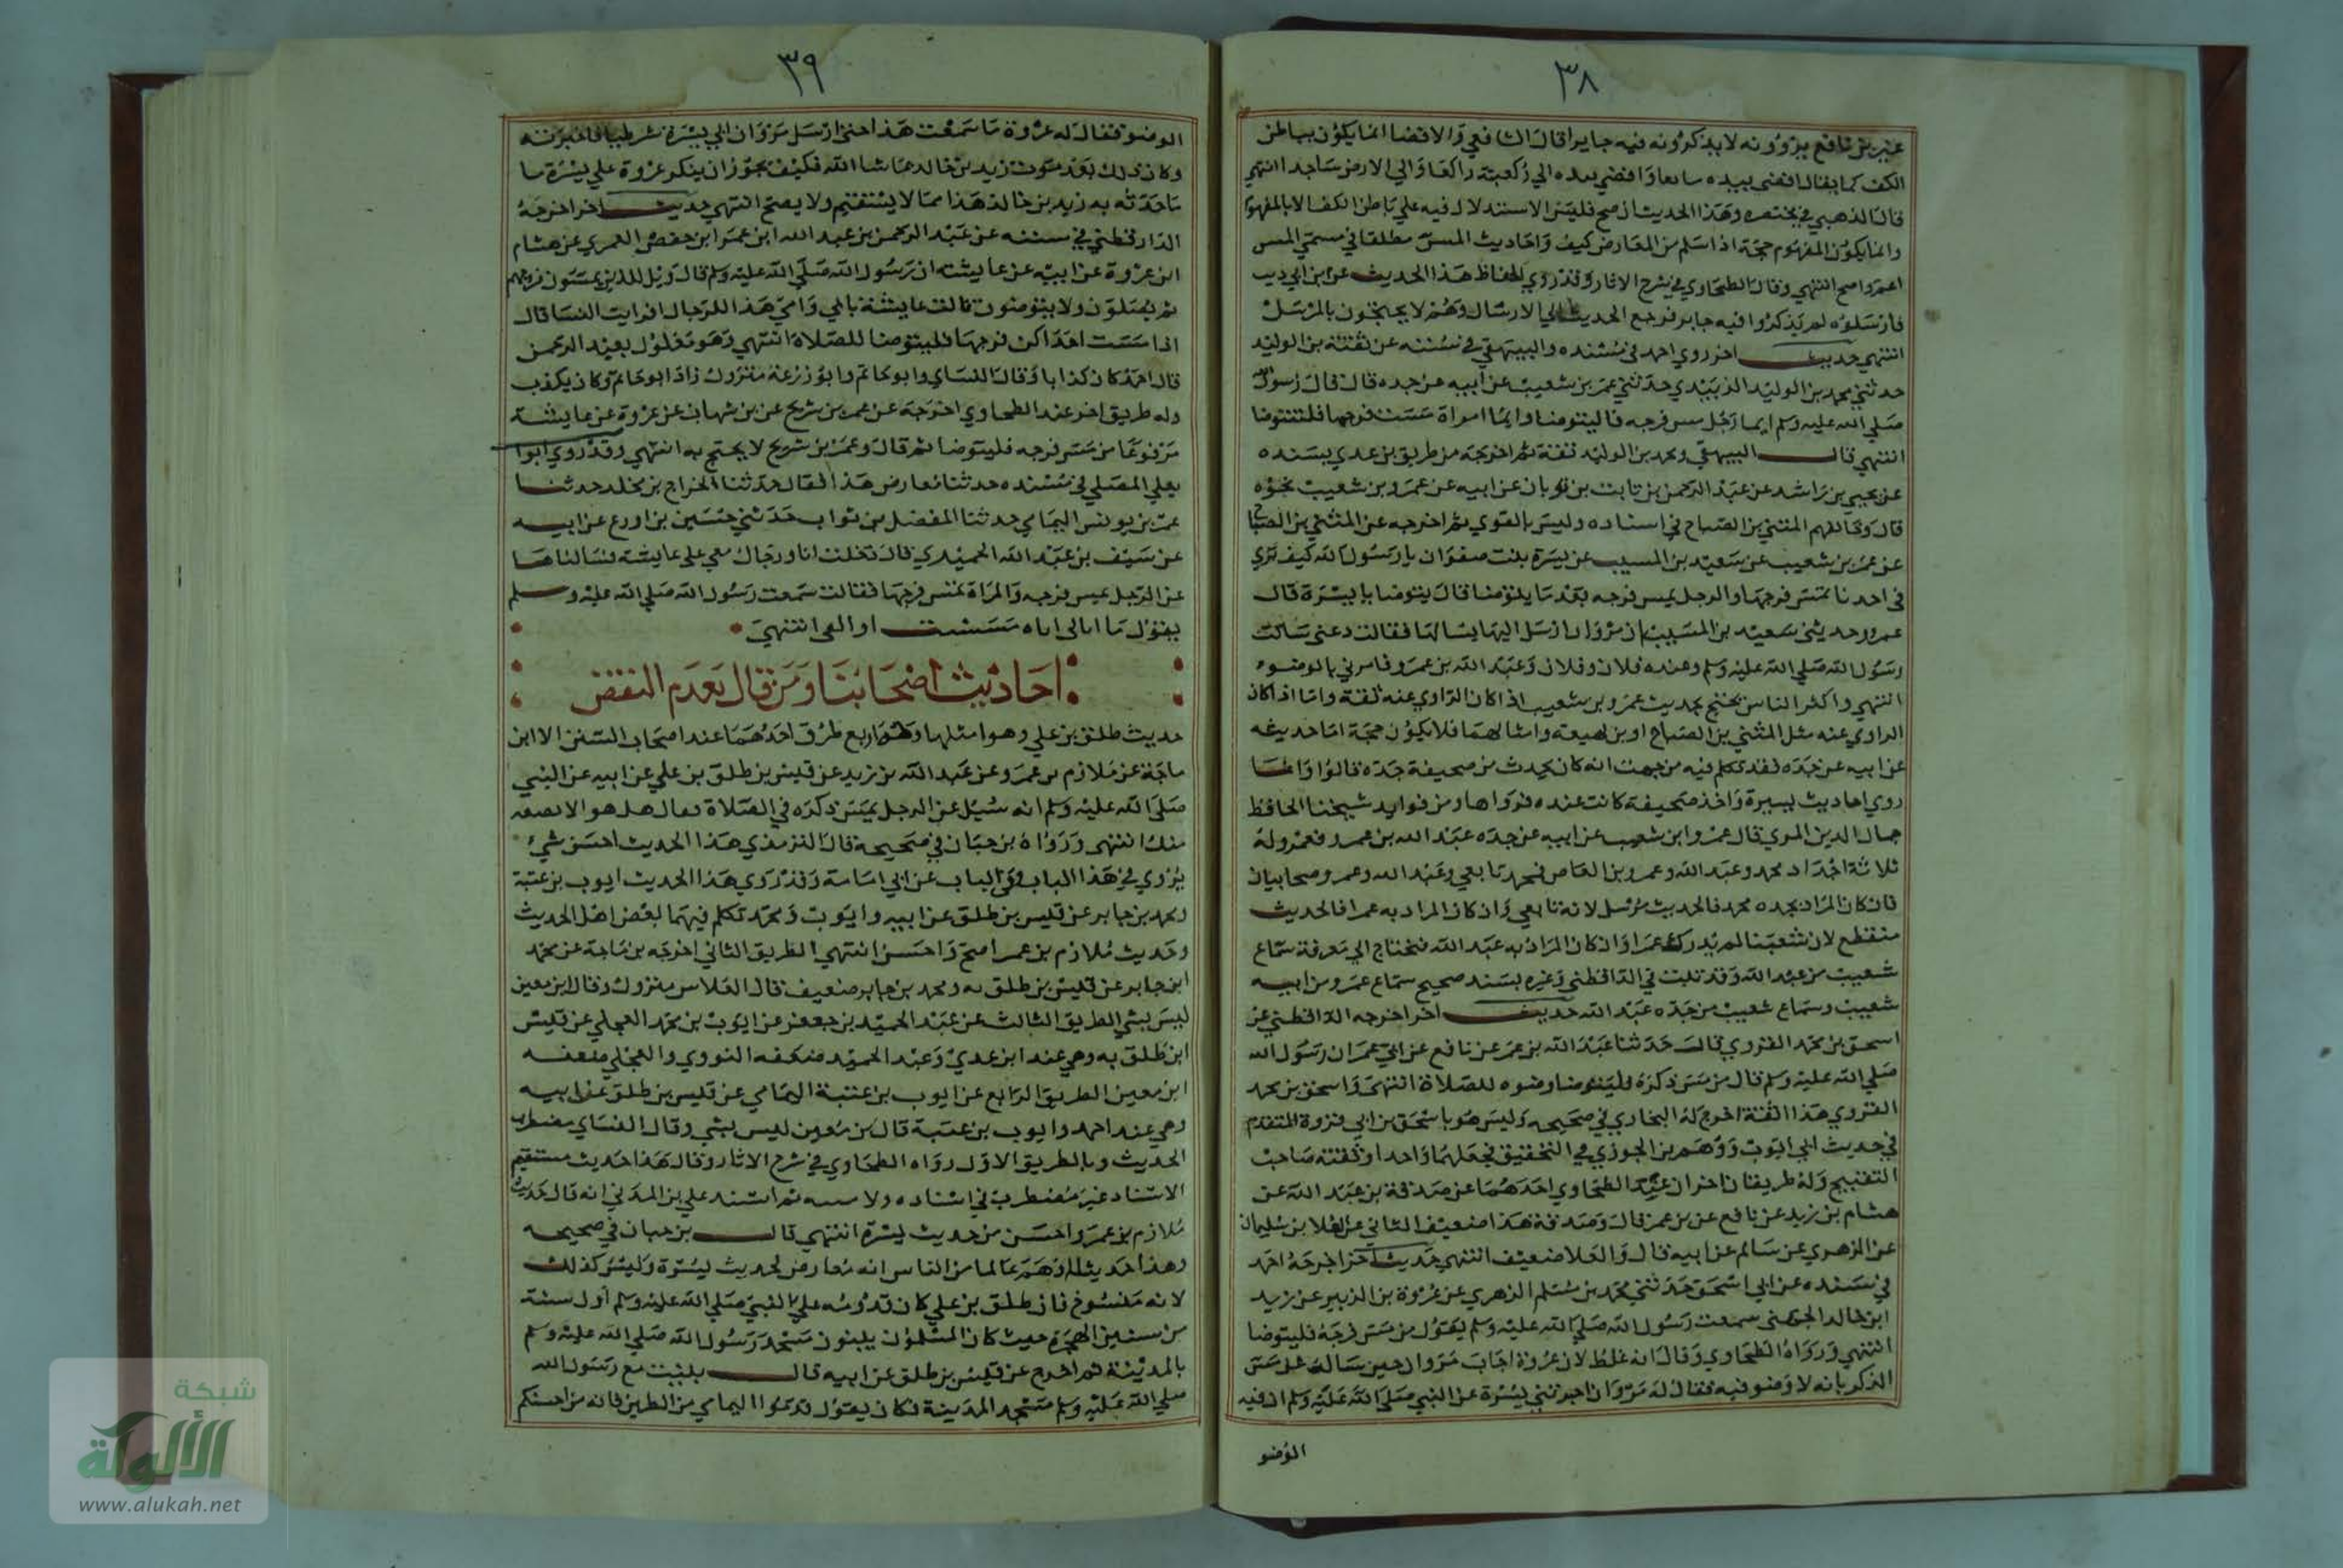 ٣٨
غير بن نافع يروونه لا يذكرون فيه جابرا قال الشافعي والافضا انما يكون بباطن
الكف كما يقال افضى بيده مبايعا وافضى بيده الي ركبته راكعا والي الارض ساجدا انتهي
قال الذهبي في مختصره وهذا الحديث ان صح فليس الاستدلال فيه علي باطن الكف الا بالمفهوم
وانما يكون المفهوم حجة اذا سلم من المعارض كيف واحاديث المس مطلقا في مسمي المس
اعم واصح انتهي وقال الطحاوي في شرح الاثار وقد روي الحفاظ هذا الحديث عن ابن ابي ذيب
فارسلوه لم يذكروا فيه جابر فرجع الحديث الي الارسال وهم لا يحتجون بالمرسل
انتهي حديث اخر روي احمد في مسنده والبيهقي في سننه عن بقية بن الوليد
حدثني محمد بن الوليد الزبيدي حدثني عمر بن شعيب عن ابيه عن جده قال قال رسول الله
صلي الله عليه وسلم ايما رجل مس فرجه فاليتوضا وايما امراة مست فرجها فلتتوضا
انتهي قال البيهقي ومحمد بن الوليد ثقة ثم اخرجه من طريق بن عدي بسنده
عن يحيي بن راشد عن عبد الرحمن بن ثابت بن ثوبان عن ابيه عن عمرو بن شعيب نحوه
قال وخالفهم المثني بن الصباح في اسناده وليس بالقوي ثم اخرجه عن المثني بن الصباح
عن عمر بن شعيب عن سعيد بن المسيب عن بسرة بنت صفوان يا رسول الله كيف تري
في احدنا تمس فرجها والرجل يمس فرجه بعد ما يتوضا قال يتوضا يا بسرة قال
عمرو وحدثني سعيد بن المسيب ان مروان ارسل اليها يسالها فقالت دعني سالت
رسول الله صلي الله عليه وسلم وعنده فلان وفلان وعبد الله بن عمرو فامرني بالوضوء
انتهي واكثر الناس يحتج بحديث عمرو بن شعيب اذا كان الراوي عنه ثقة واما اذا كان
الراوي عنه مثل المثني بن الصباح او بن لهيعة وامثالهما فلا يكون حجة اما حديثه
عن ابيه عن جده فقد تكلم فيه من جهت انه كان يحدث من صحيفة جده قالوا وانما
روي احاديث يسيرة واخذ صحيفة كانت عنده فرواها ومن فوايد شيخنا الحافظ
جمال الدين المزي قال عمر وابن شعيب عن ابيه عن جده عبد الله بن عمرو فعمرو له
ثلاثة اجداد محمد وعبد الله وعمرو بن العاص فمحمد تابعي وعبد الله وعمرو صحابيان
فان كان المراد بجده محمد فالحديث مرسل لانه تابعي وان كان المراد به عمرا فالحديث
منقطع لان شعيبا لم يدرك عمرا وان كان المراد به عبد الله فيحتاج الي معرفة سماع
شعيب من عبد الله وقد ثبت في الداقطني وغيره بسند صحيح سماع عمرو من ابيه
شعيب وسماع شعيب من جده عبد الله حديث اخر اخرجه الداقطني عن
اسحق بن محمد الفروي قال حدثنا عبد الله بن عمر عن نافع عن ابي عمر ان رسول الله
صلي الله عليه وسلم قال من مس ذكره فليتوضا وضوه للصلاة انتهي واسحق بن محمد
الفروي هذا ثقة اخرج له البخاري في صحيحه وليس هو باسحق بن ابي فروة المتقدم
في حديث ابي ايوب ووهم بن الجوزي في التحقيق فجعلهما واحدا وثقته صاحب
التنقيح وله طريقان اخران عند الطحاوي احدهما عن صدقة بن عبد الله عن
هشام بن زيد عن نافع عن بن عمر قال وصدقة هذا ضعيف الثاني عن العلا بن سليمان
عن الزهري عن سالم عن ابيه قال والعلا ضعيف انتهي حديث اخر اخرجه احمد
في مسنده عن ابي اسحق حدثني محمد بن مسلم الزهري عن عروة بن الزبير عن زيد
ابن خالد الجهني سمعت رسول الله صلي الله عليه وسلم يقول من مس فرجه فليتوضا
انتهي ورواه الطحاوي وقال انه غلط لان عروة اجاب مروان حين ساله عن مس
الذكر بانه لا وضو فيه فقال له مروان اخبرتني بسرة عن النبي صلي الله عليه وسلم ان فيه
الوضو
٣٩
الوضو فقال له عروة ما سمعت هذا حتي ارسل مروان الي بسرة شرطيا فاخبرته
وكان ذلك بعد موت زيد بن خالد عما شا الله فكيف يجوز ان ينكر عروة علي بسرة ما
ما حدثه به زيد بن خالد هذا مما لا يستقيم ولا يصح انتهي حديث اخر اخرجه
الدارقطني في سننه عن عبد الرحمن بن عبد الله ابن عمر ابن حفص العمري عن هشام
ابن عروة عن ابيه عن عايشه ان رسول الله صلي الله عليه وسلم قال ويل للذين يمسون فروجهم
ثم يصلون ولا يتوضون قالت عايشة بابي وامي هذا للرجال افرايت النسا قال
اذا مست احداكن فرجها فليتوضا للصلاة انتهي وهو معلول بعبد الرحمن
قال احمد كان كذابا وقال النساي وابو حاتم وابو زرعة متروك زاد ابو حاتم وكان يكذب
وله طريق اخر عند الطحاوي اخرجه عن عمر بن شريح عن بن شهاب عن عروة عن عايشة
مرفوعا من مس فرجه فليتوضا ثم قال وعمر بن شريح لا يحتج به انتهي وقد روي ابوا
يعلي الموصلي في مسنده حدثنا معارض هذا فقال حدثنا الجراح بن مخلد حدثنا
عمر بن يونس اليمامي حدثنا المفضل بن ثواب حدثني حسين بن اورع عن ابيه
عن سيف بن عبد الله الحميري قال دخلت انا ورجال معي علي عايشه فسالناها
عن الرجل يمس فرجه والمراة تمس فرجها فقالت سمعت رسول الله صلي الله عليه وسلم
يقول ما ابالي اياه مسست او انفي انتهي
احاديث اصحابنا ومن قال بعدم النقض
حديث طلق بن علي وهو امثلها وله اربع طرق احدهما عند اصحاب السنن الا ابن
ماجة عن ملازم بن عمرو عن عبد الله بن زيد عن قيس بن طلق بن علي عن ابيه عن النبي
صلي الله عليه وسلم انه سيل عن الرجل يمس ذكره في الصلاة فقال هل هو الا بضعه
منك انتهي ورواه بن حبان في صحيحه قال الترمذي هذا الحديث احسن شيء
يروي في هذا الباب وفي الباب عن ابي امامة وقد روي هذا الحديث ايوب بن عتبة
ومحمد بن جابر عن قيس بن طلق عن ابيه وايوب ومحمد تكلم فيهما بعض اهل الحديث
وحديث ملازم بن عمر اصح واحسن انتهي الطريق الثاني اخرجه بن ماجة عن محمد
ابن جابر عن قيس بن طلق به ومحمد بن جابر ضعيف قال الفلاس متروك وقال ابن معين
ليس بشي الطريق الثالث عن عبد الحميد بن جعفر عن ايوب بن محمد العجلي عن قيس
ابن طلق به وهي عند ابن عدي وعبد الحميد ضعفه النووي والعجلي ضعفه
ابن معين الطريق الرابع عن ايوب بن عتبة اليمامي عن قيس بن طلق عن ابيه
وهي عند احمد وايوب بن عتبة قال بن معين ليس بشي وقال النساي مضطرب
الحديث وبالطريق الاول رواه الطحاوي في شرح الاثار وقال هذا حديث مستقيم
الاسناد غير مضطرب في اسناده ولا متنه ثم اسند علي بن المديني انه قال حديث
ملازم بن عمرو احسن من حديث بسرة انتهي قال بن حبان في صحيحه
وهذا حديث اوهم عالما من الناس انه معارض لحديث بسرة وليس كذلك
لانه منسوخ فان طلق بن علي كان قدومه علي النبي صلي الله عليه وسلم اول سنة
من سنين الهجرة حيث كان المسلمون يبنون مسجد رسول الله صلي الله عليه وسلم
بالمدينة ثم اخرج عن قيس بن طلق عن ابيه قال بنيت مع رسول الله
صلي الله عليه وسلم مسجد المدينة فكان يقول قدموا اليمامي من الطين فانه من احسنكم
شبكة
الألوكة
www.alukah.net